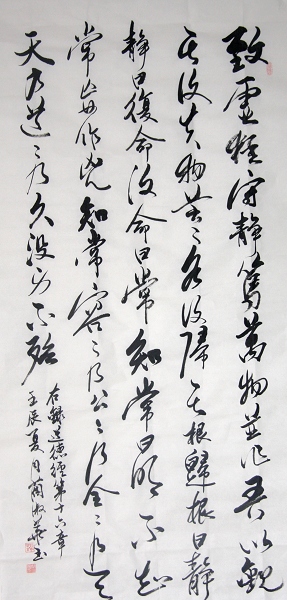 致虚極守静篤萬物並作吾以觀
其復夫物芸〻各復歸其根歸根曰静
静曰復命復命曰常知常曰明不知
常妄作凶知常容〻乃公〻乃全〻乃天
天乃道〻乃久没身不殆
右録道德經第十六章
壬辰夏月蘭淑